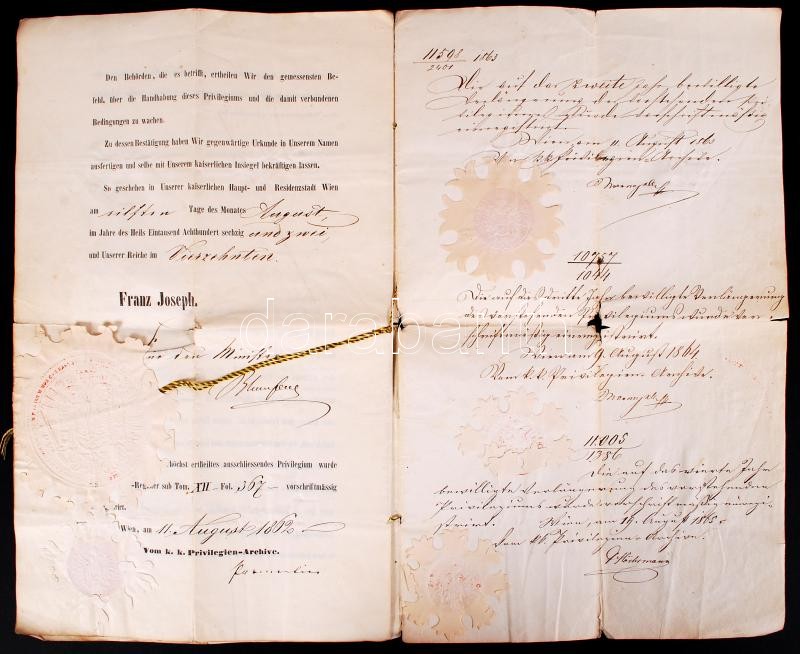 Den Behörden, die es betrifft, ertheilen Wir den gemessensten Be-
fehl, über die Handhabung dieses Privilegiums und die damit verbundenen
Bedingungen zu wachen.
Zu dessen Bestätigung haben Wir gegenwärtige Urkunde in Unserem Namen
ausfertigen und selbe mit Unserem kaiserlichen Insiegel bekräftigen lassen.
So geschehen in Unserer kaiserlichen Haupt- und Residenzstadt Wien
am eilften Tage des Monates August,
im Jahre des Heils Eintausend Achthundert sechzig und zwei
und Unserer Reiche im Vierzehnten.
Franz Joseph.
den Minister
höchst ertheiltes ausschliessendes Privilegium wurde
-Register sub Tom. XII - Fol. 367 - vorschriftmässig
Wien, am 11. August 1862
Vom k. k. Privilegien-Archive.
11598/2401 1863
Die auf das zweite Jahr bewilligte
Verlängerung des bestehenden Privi-
legiums wurde vorschriftmäßig
einregistrirt.
Wien am 11. August 1863
Vom k.k. Privilegien-Archive.
10757
1044
Die auf das dritte Jahr bewilligte Verlängerung
des vorstehenden Privilegiums wurde vor-
schriftmäßig einregistrirt.
Wien am 9. August 1864
Vom k.k. Privilegien-Archive.
11.005
1386
Die auf das vierte Jahr
bewilligte Verlängerung des vorstehenden
Privilegiums wurde vorschriftmäßig einregi-
strirt. Wien, am 14. August 1865
Vom k.k. Privilegien-Archive.
darabanth